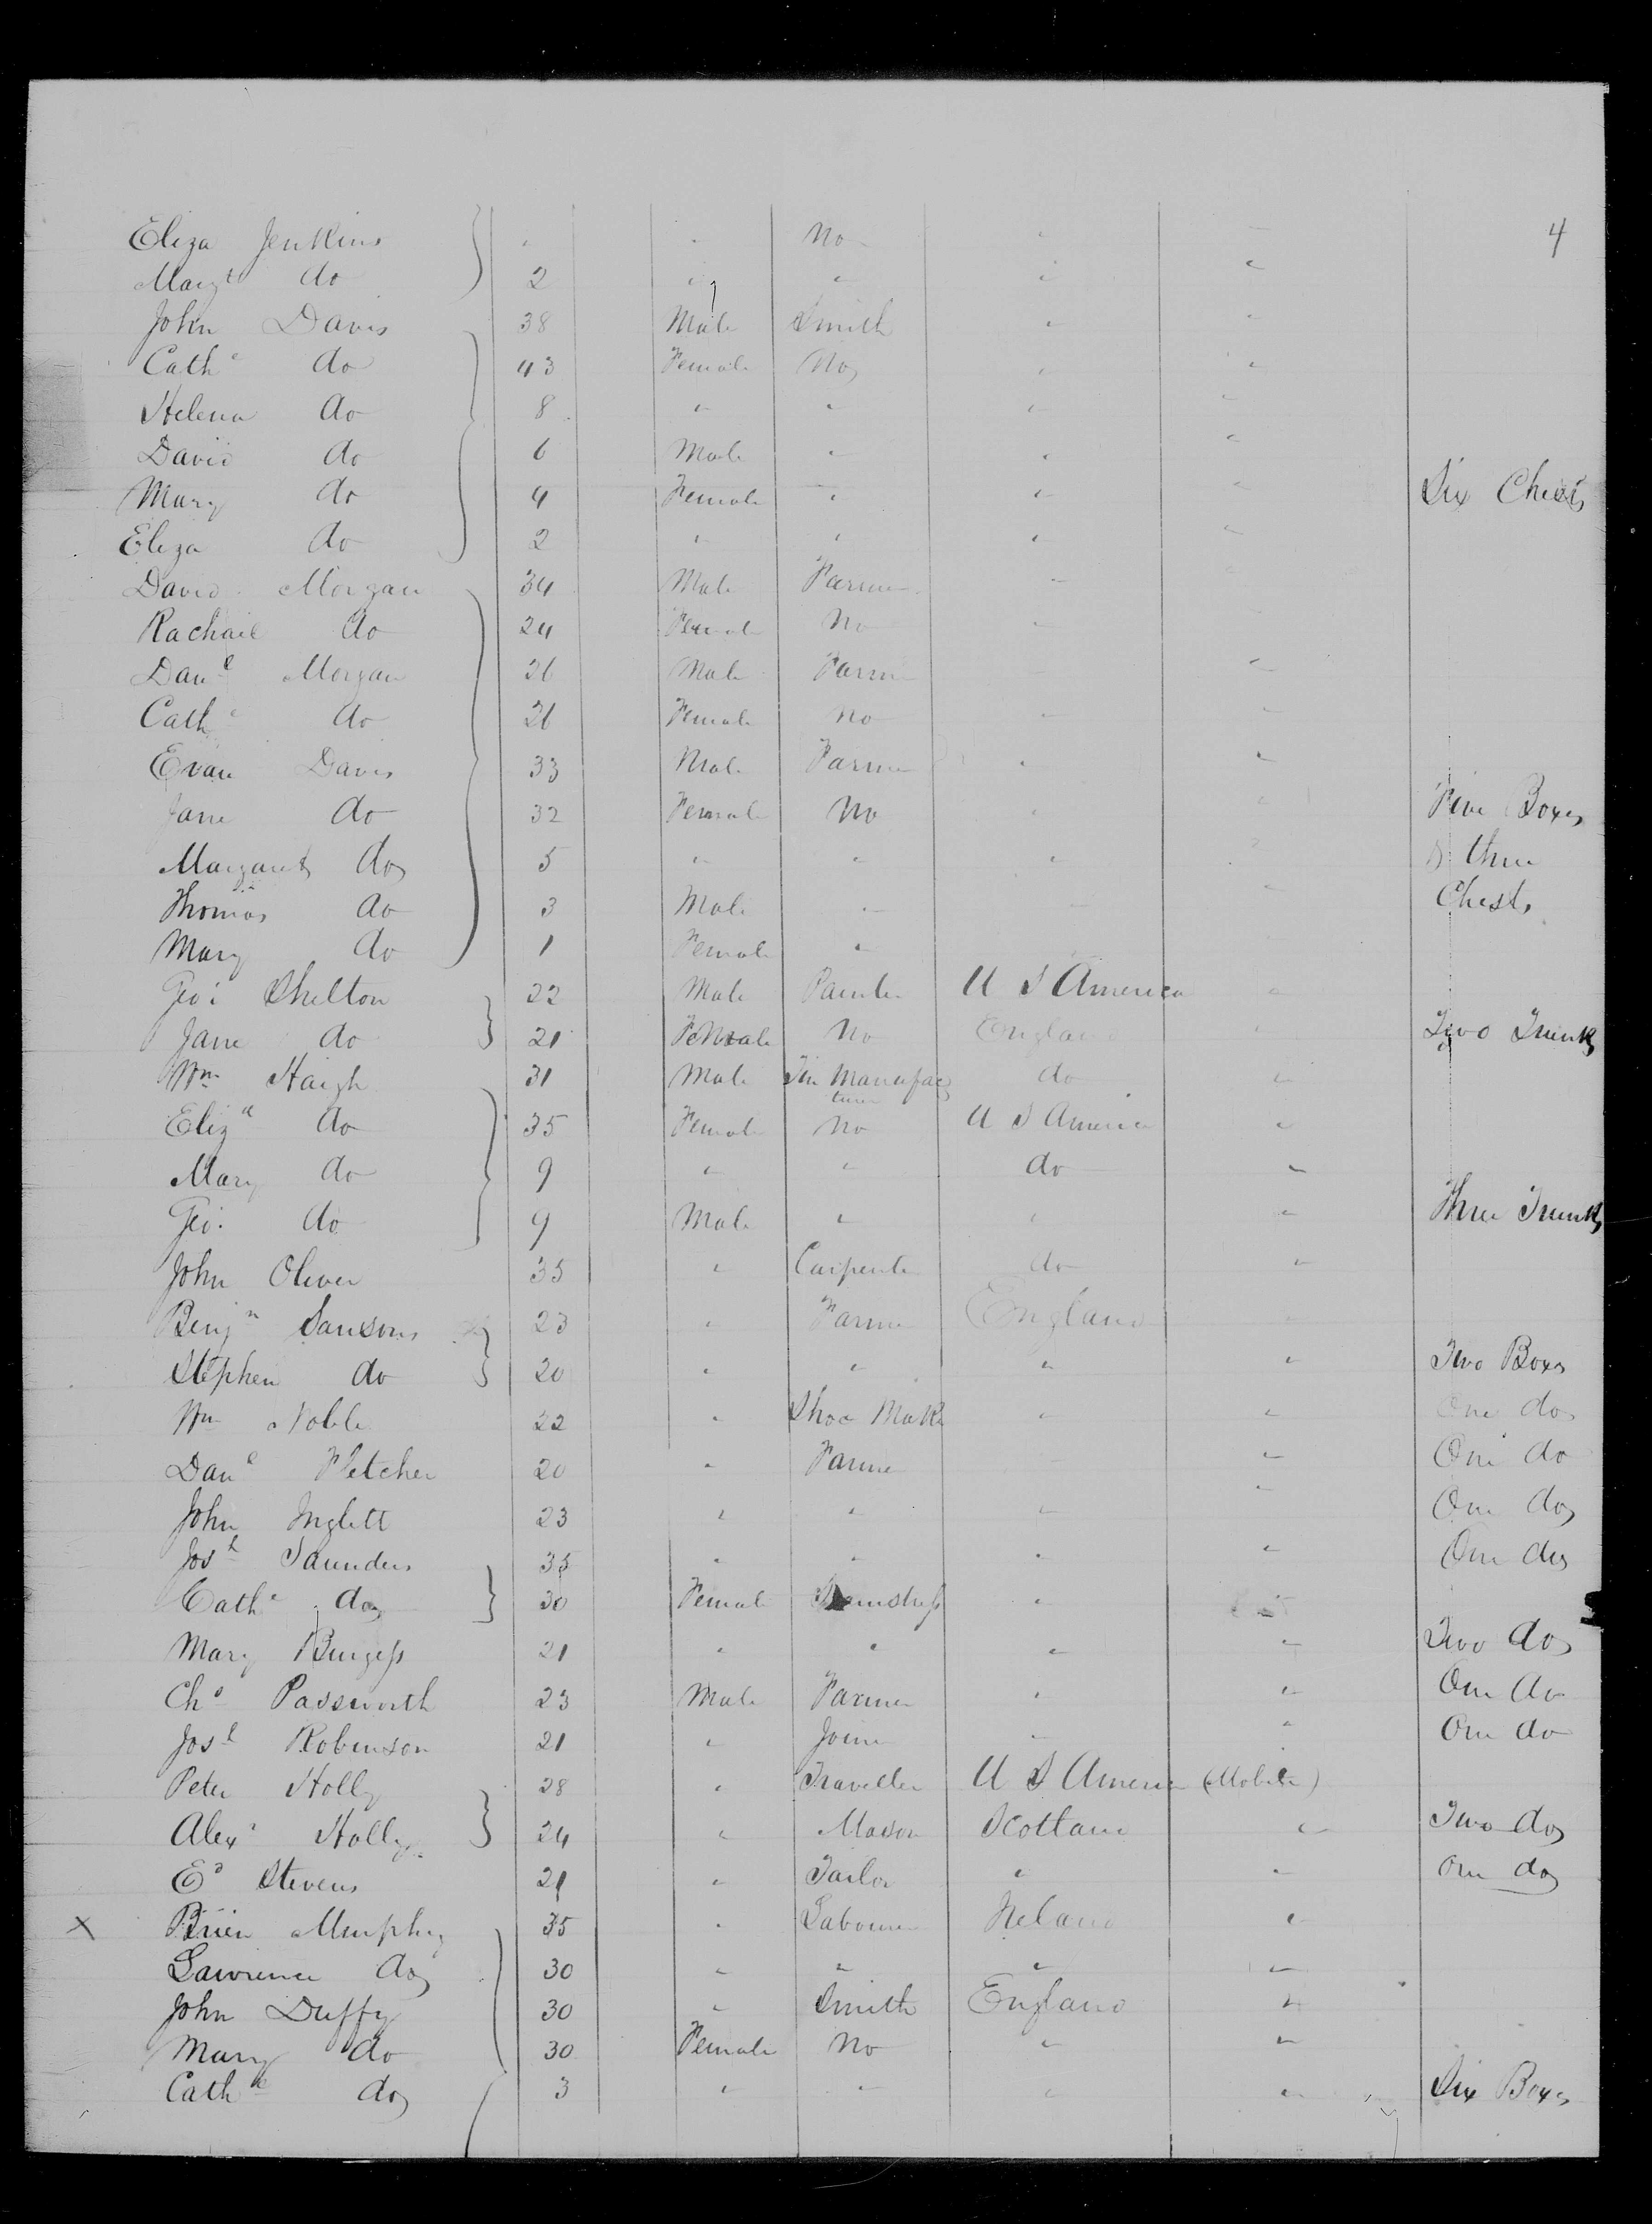 4
Eliza Jenkins " " No " "
Margt do 2 " " " "
John Davis 38 Male Smith " "
Cathe do 43 Female No " "
Helena do 8 " " " "
David do 6 Male " " "
Mary do 4 Female " " " Six Chests
Eliza do 2 " " " "
David Morgan 34 Male Farmer "
Rachail do 24 Female No "
Danl Morgan 26 Male Farmer "
Cathe do 26 Female No " "
Evan Davis 33 Male Farmer " "
Jane do 32 Female No " " Five Boxes
Margaret do 5 " " " " & three
Thomas do 3 Male " " " Chests
Mary do 1 Female "
Geo: Shelton 22 Male Painter U S America "
Jane do 21 Female No England " Two Trunks
Wm Haigh 31 Male Tin Manufac do "
turer
Elizh do 35 Female No U S America "
Mary do 9 " " do "
Geo. do 9 Male " " " Three Trunks
John Oliver 35 " Carpenter do "
Benjn Sansons 23 " Farmer England "
Stephen do 20 " " " " Two Boxes
Wm Noble 22 " Shoe Maker " " One do
Danl Fletcher 20 " Farmer " " One do
John Inglett 23 " " " " One do
Josh Saunders 35 " " " " One do
Cathe do 30 Female Seamstress " "
Mary Burgess 21 " " " " Two do
Chs Passworth 23 Male Farmer " " One do
Josh Robinson 21 " Joiner " " One do
Peter Holly 28 " Traveller U S America (Mobile)
Alexr Holly 24 " Mason Scotland " Two do
Ed Stevens 21 " Tailor " " One do
X Brien Murphy 35 " Labourer Ireland "
Lawrence do 30 " " " "
John Duffy 30 " Smith England "
Mary do 30 Female No " "
Cathe do 3 " " " " Six Boxes